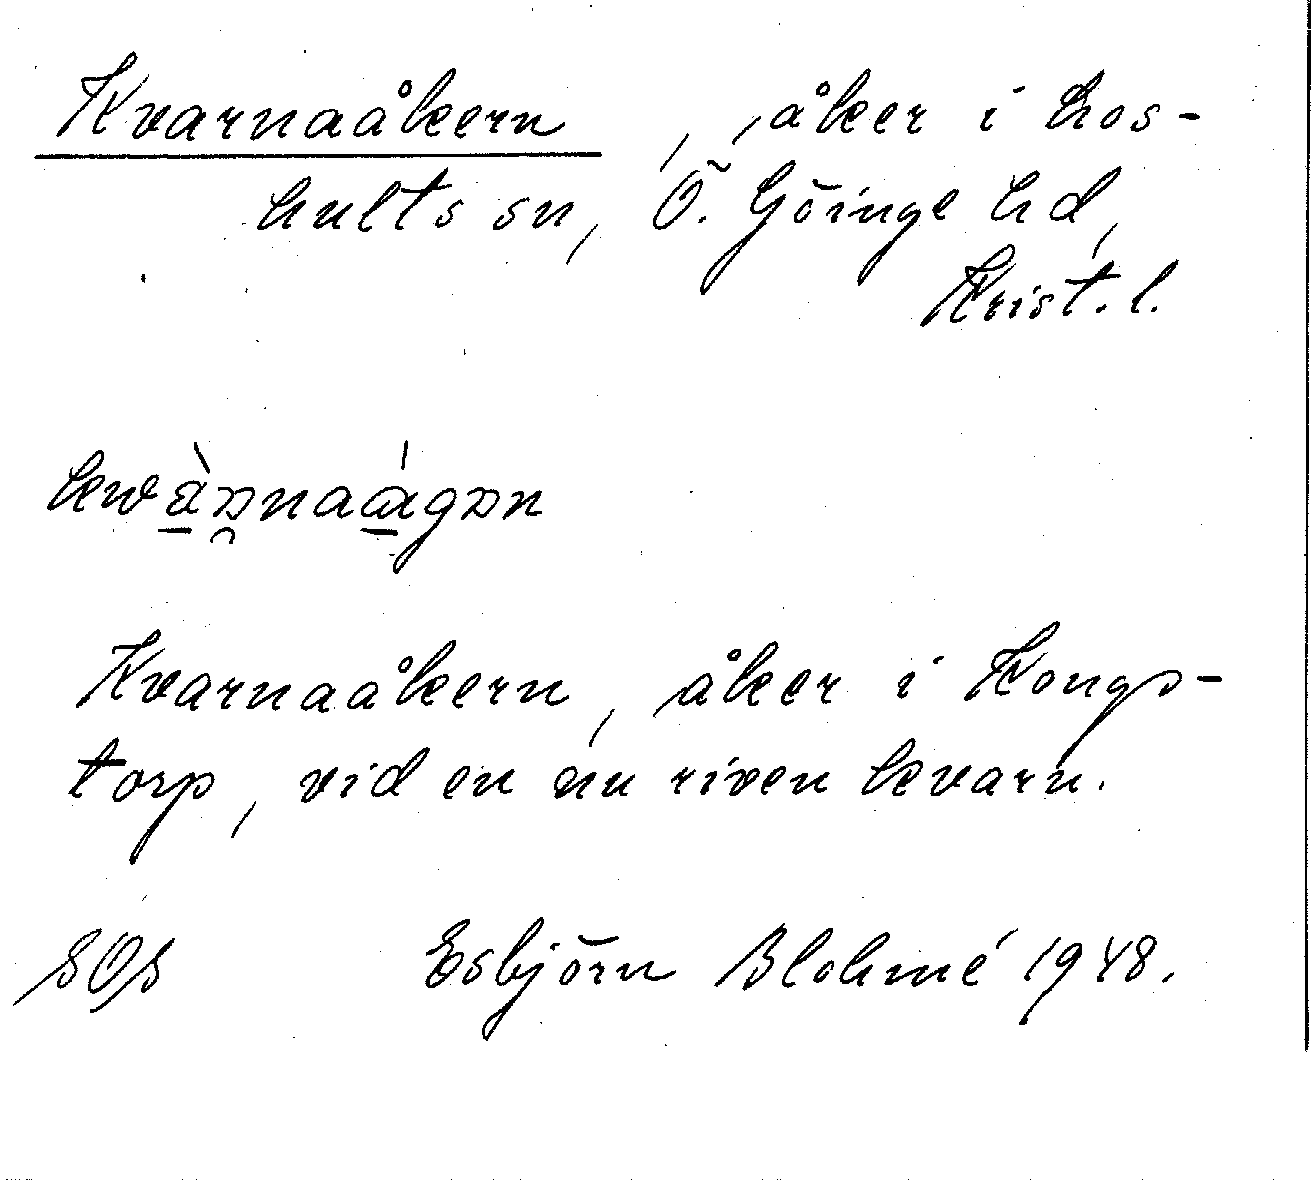 Kvarnaåkern, åker i Los-
hults sn, Ö. Göinge hd,
Krist. l.
Kvarnaåkern, åker i Kongs-
torp, vid en nu riven kvarn.
SOS Esbjörn Blohmé 1948.